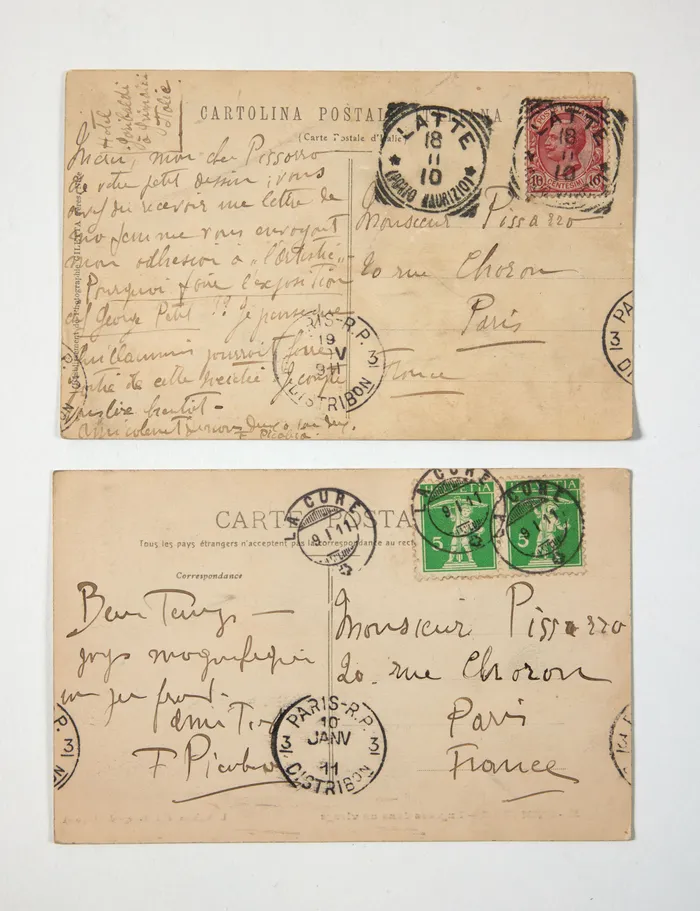 Hotel
Garibaldi
à Grimaldi
Italie
CARTOLINA POSTALE ITALIANA
(Carte Postale d'Italie)
LATTE
18
11
10
(PORTO MAURIZIO)
LATTE
18
11
10
15 CENTESIMI 15
mon cher Pissarro
de votre petit dessin, vous
avez dû recevoir une lettre de
ma femme vous envoyant
mon adhésion à "l'artistie"
Pourquoi faire l'exposition
chez George Petit ?? Je pense que
Guillaumin pourrait faire
partie de cette Société. Je compte
vous lire bientôt -
F Picabia
Monsieur Pissarro
20 rue Choron
Paris
France
PARIS-R.P.
19
3
DISTRIBON
PA
3
D
LA CURE
9.I.11
HELVETIA
5
LA CURE
9.I.11
HELVETIA
5
LA CURE
9.I.11
CARTE POSTA
Tous les pays étrangers n'acceptent pas la correspondance au recto
Correspondance
Beau Temps -
pays magnifique
un peu froid.
F Picabia
Monsieur Pissarro
20. rue Choron
Paris
France
PARIS-R.P.
10
JANV
11
3 3
DISTRIBON
P.
3